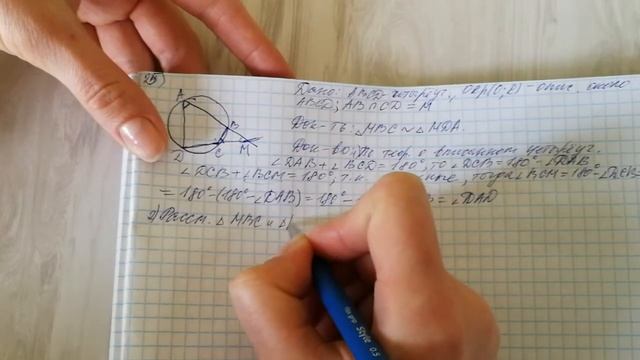 2В)
A
B
C
M
D
Дано: ABCD - четырёхуг., окр(O;R) - опис. около
ABCD; AB∩CD = M
Док-ть: △MBC ~ △MDA.
Док-во: 1) По теор. о вписанном четырёхуг.
∠DAB + ∠BCD = 180°, то ∠DCB = 180° - ∠DAB
∠DCB + ∠BCM = 180°, т.к. , тогда ∠BCM = 180° - ∠DCB
= 180° - (180° - ∠DAB) = 180° - B = ∠DAD
2) Рассм. △ MBC и △